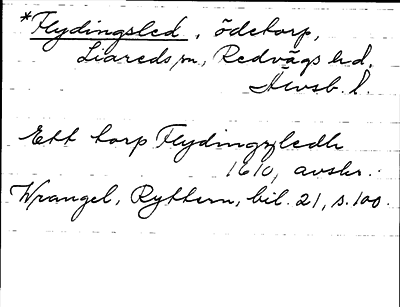 *Flydingsled, ödetorp,
Liareds sn, Redvägs hd,
Älvsb. l.
Ett torp Flydingzledh
1610, avskr.:
Wrangel, Ryttern, bil. 21, s. 100.